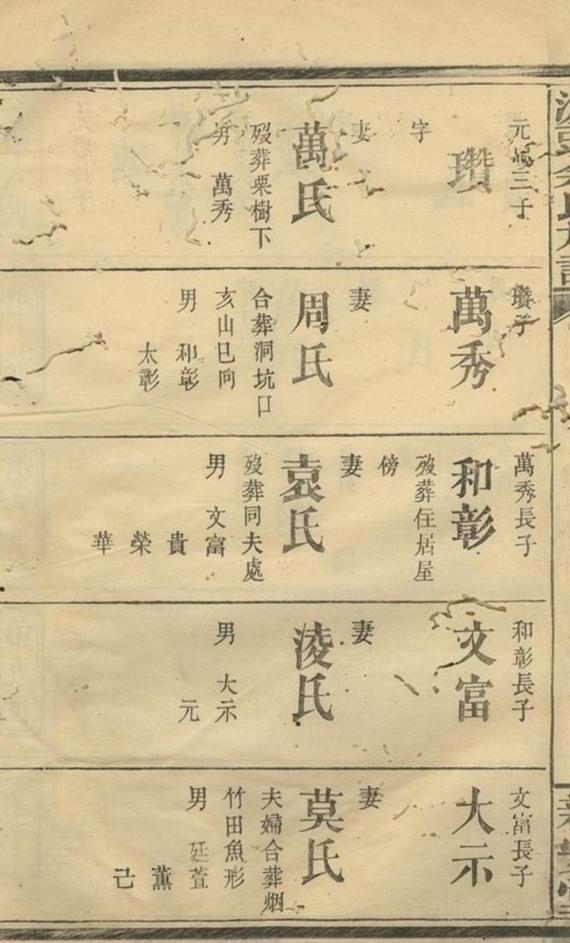 元 三子
瓚
字
妻
萬氏
歿葬栗樹下
男 萬秀
瓚子
萬秀
妻
周氏
合葬洞坑口
亥山巳向
男 和彰
太彰
萬秀長子
和彰
歿葬住居屋
傍
妻
袁氏
歿葬同夫處
男 文富
貴
榮
華
和彰長子
文富
妻
淩氏
男 大示
元
文富長子
大示
妻
莫氏
夫婦合葬烟
竹田魚形
男 廷萱
薫
己
氏